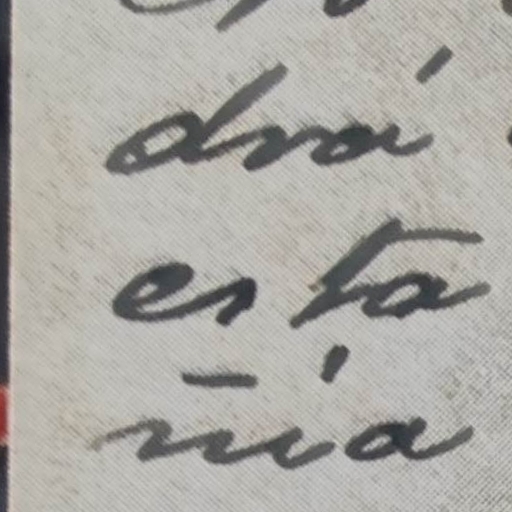 drá
esta
ñía